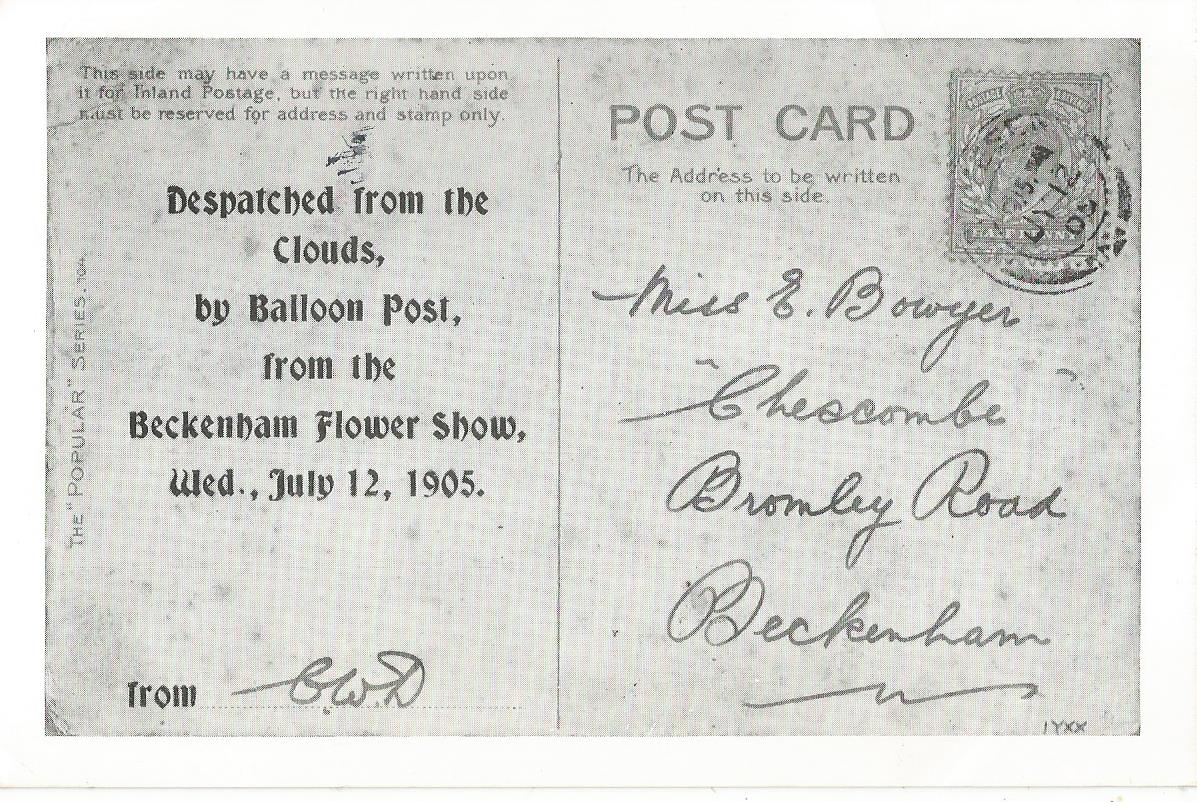 This side may have a message written upon
it for Inland Postage, but the right hand side
must be reserved for address and stamp only.
Despatched from the
Clouds,
by Balloon Post,
from the
Beckenham Flower Show,
Wed., July 12, 1905.
from C.W.D
THE "POPULAR" SERIES. 104.
POST CARD
The Address to be written
on this side.
HALF PENNY
JY 12
05
Miss E. Bowyer
"Chescombe"
Bromley Road
Beckenham